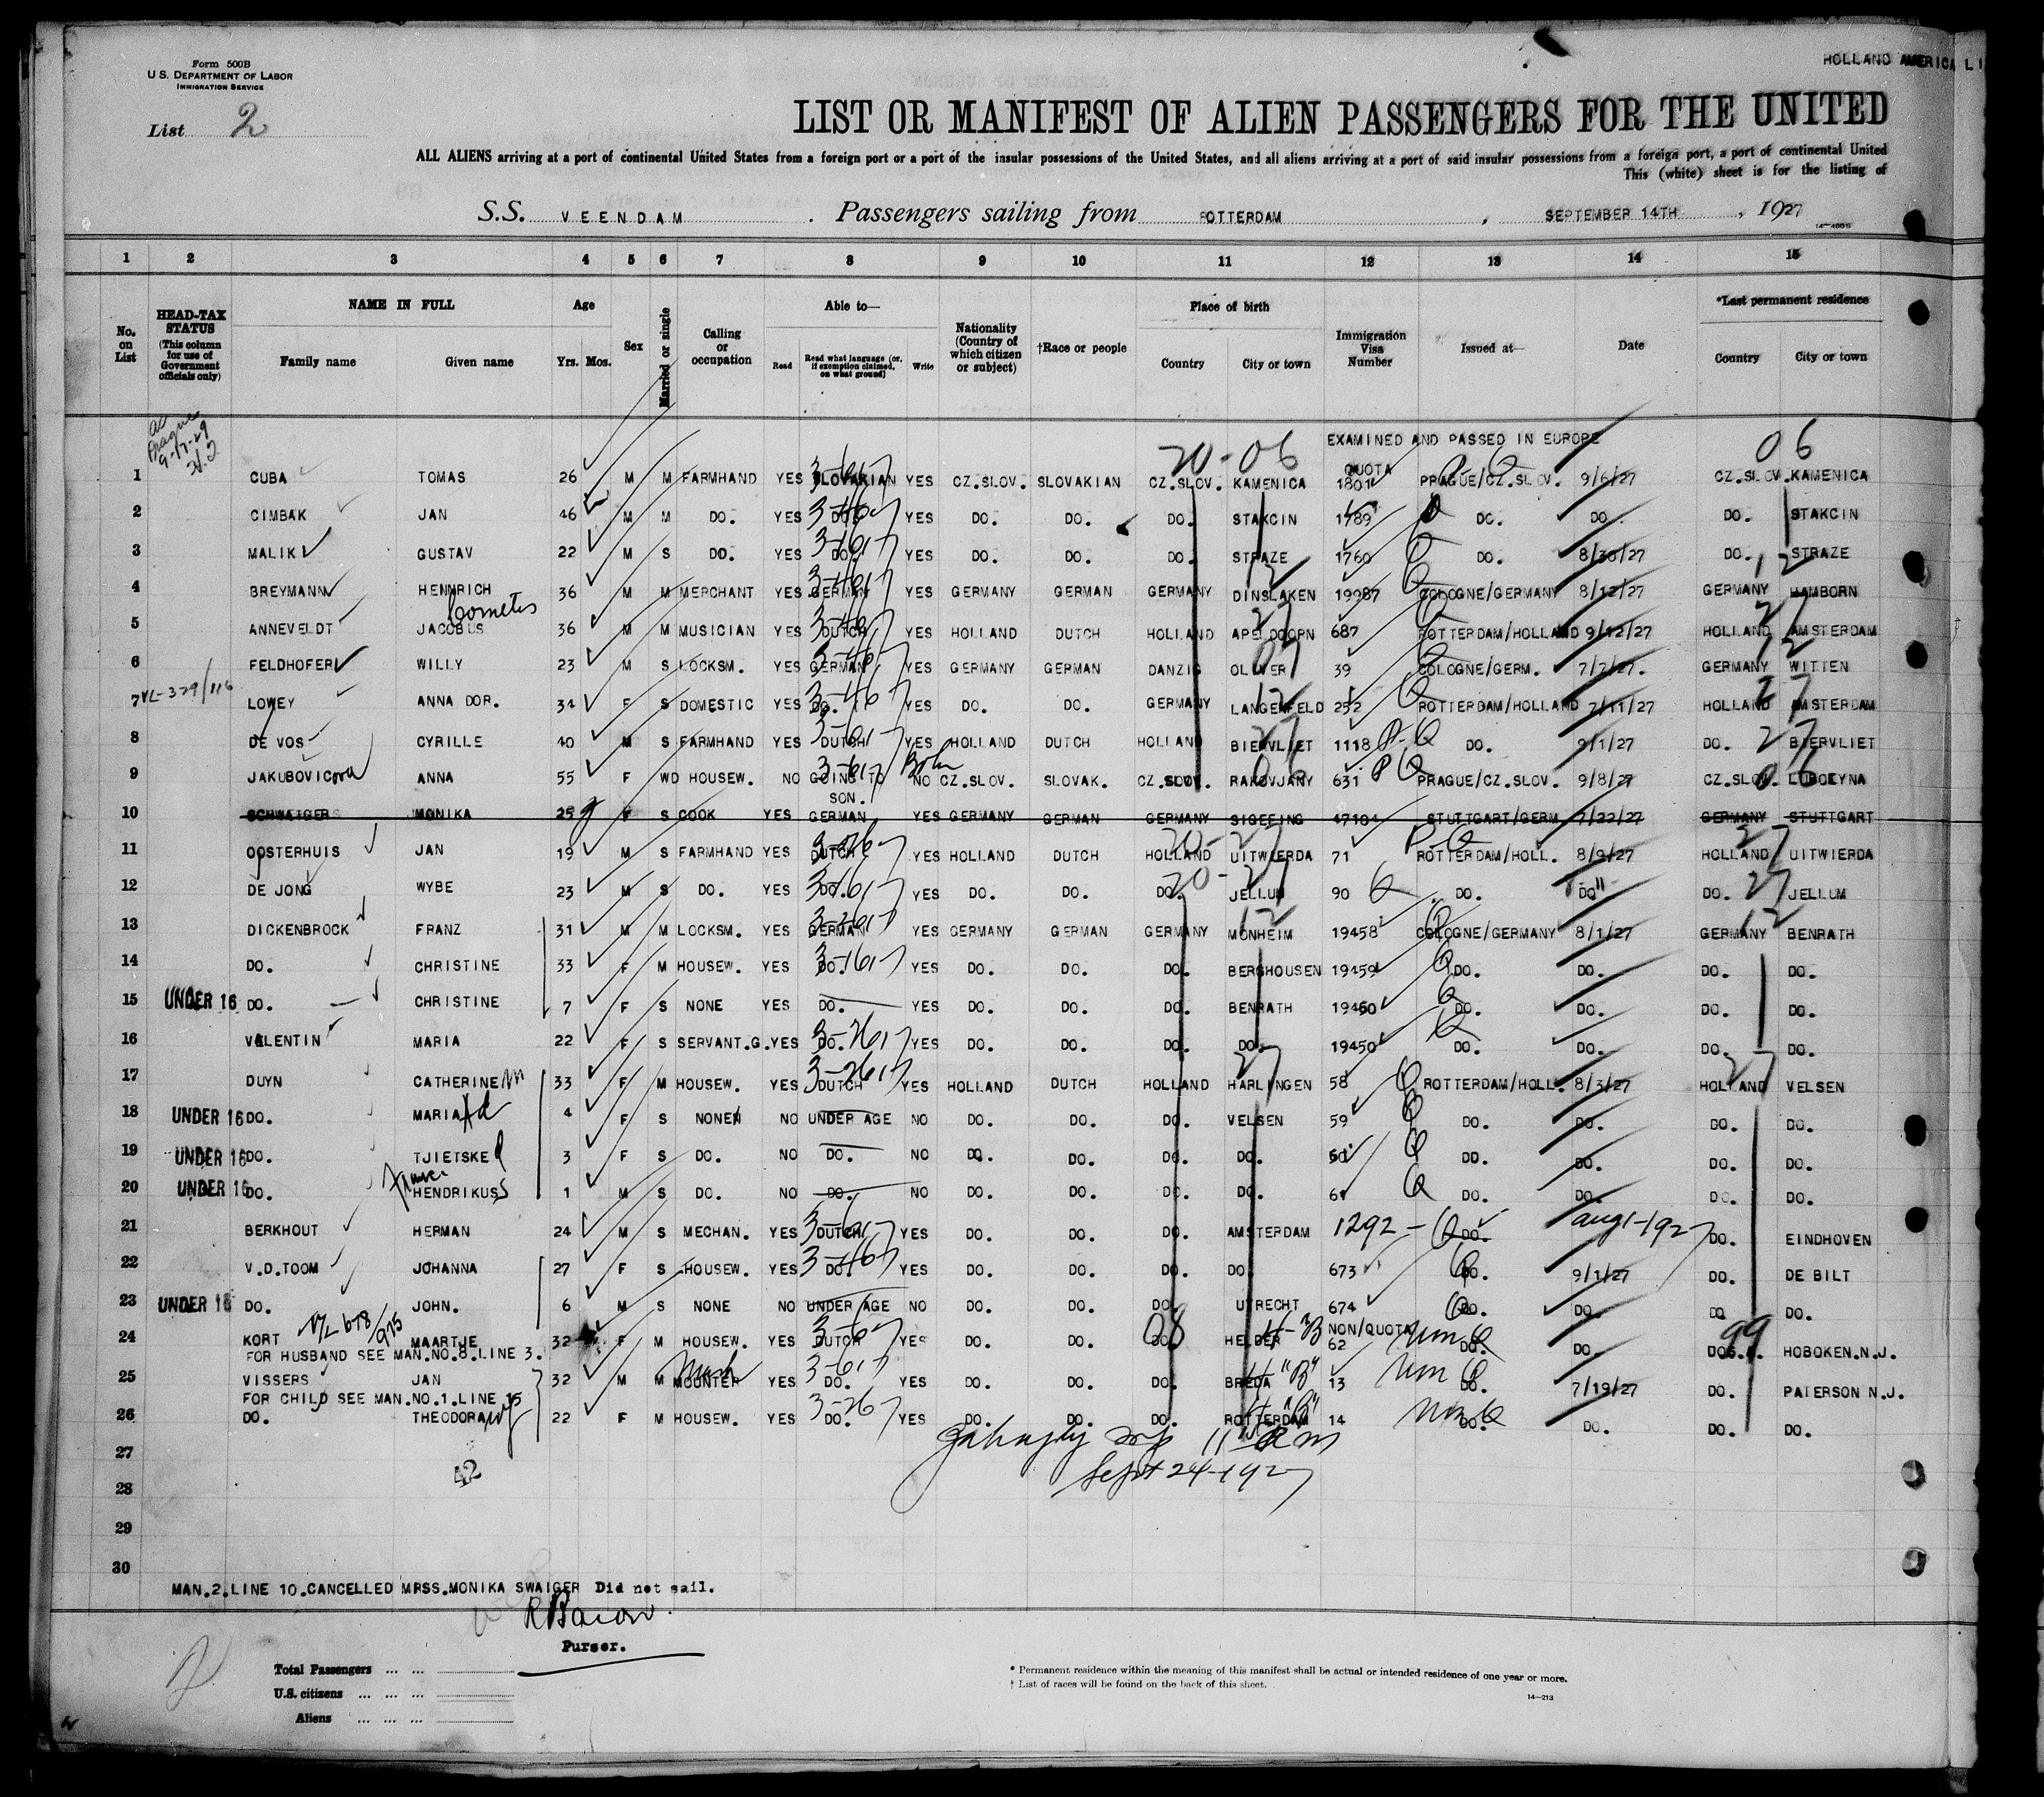 Form 500B
U.S. DEPARTMENT OF LABOR
IMMIGRATION SERVICE
HOLLAND AMERICA LI
List 2
LIST OR MANIFEST OF ALIEN PASSENGERS FOR THE UNITED
ALL ALIENS arriving at a port of continental United States from a foreign port or a port of the insular possessions of the United States, and all aliens arriving at a port of said insular possessions from a foreign port, a port of continental United
This (white) sheet is for the listing of
S.S. VEENDAM . Passengers sailing from ROTTERDAM , SEPTEMBER 14TH , 1927
1 2 3 4 5 6 7 8 9 10 11 12 13 14 15
No. on List
HEAD-TAX STATUS (This column for use of Government officials only)
NAME IN FULL
Family name Given name
Age
Yrs. Mos.
Sex
Married or single
Calling or occupation
Able to—
Read
Read what language (or, if exemption claimed, on what ground)
Write
Nationality (Country of which citizen or subject)
†Race or people
Place of birth
Country City or town
Immigration Visa Number
Issued at—
Date
*Last permanent residence
Country City or town
Prague
9-17-29
20-06 EXAMINED AND PASSED IN EUROPE 06
QUOTA
1 CUBA TOMAS 26 M M FARMHAND YES SLOVAKIAN YES CZ.SLOV. SLOVAKIAN CZ.SLOV. KAMENICA 1801 PRAGUE/CZ.SLOV. 9/6/27 CZ.SLOV. KAMENICA
2 CIMBAK JAN 46 M M DO. YES DO. YES DO. DO. DO. STAKCIN 1789 DO. DO. DO. STAKCIN
3 MALIK GUSTAV 22 M S DO. YES DO. YES DO. DO. DO. STRAZE 1760 DO. 8/30/27 DO. STRAZE
4 BREYMANN HENNRICH 36 M M MERCHANT YES GERMAN YES GERMANY GERMAN GERMANY DINSLAKEN 19987 COLOGNE/GERMANY 8/12/27 GERMANY HAMBORN
5 ANNEVELDT JACOBUS 36 M M MUSICIAN YES DUTCH YES HOLLAND DUTCH HOLLAND APELDOORN 687 ROTTERDAM/HOLLAND 9/12/27 HOLLAND AMSTERDAM
6 FELDHOFER WILLY 23 M S LOCKSM. YES GERMAN YES GERMANY GERMAN DANZIG OLIVER 39 COLOGNE/GERM. 7/7/27. GERMANY WITTEN
7 VL-379/116 LOWEY ANNA DOR. 34 F S DOMESTIC YES DO. YES DO. DO. GERMANY LANGENFELD 252 ROTTERDAM/HOLLAND 7/11/27 HOLLAND AMSTERDAM
8 DE VOS CYRILLE 40 M S FARMHAND YES DUTCH YES HOLLAND DUTCH HOLLAND BIERVLIET 1118 DO. 9/1/27 DO. BIERVLIET
9 JAKUBOVICova ANNA 55 F WD HOUSEW. NO GOING TO SON. NO CZ.SLOV. SLOVAK. CZ.SLOV. RAKOVJANY 631 PRAGUE/CZ.SLOV. 9/8/27 CZ.SLOV. LUBOTYNA
10 SCHWAIGER MONIKA 25 F S COOK YES GERMAN YES GERMANY GERMAN GERMANY SIGEFING 47104 STUTTGART/GERM. 7/22/27 GERMANY STUTTGART
11 OOSTERHUIS JAN 19 M S FARMHAND YES DUTCH YES HOLLAND DUTCH HOLLAND UITWIERDA 71 ROTTERDAM/HOLL. 8/9/27 HOLLAND UITWIERDA
12 DE JONG WYBE 23 M S DO. YES DO. YES DO. DO. DO. JELLUM 90 DO. DO DO. JELLUM
13 DICKENBROCK FRANZ 31 M M LOCKSM. YES GERMAN YES GERMANY GERMAN GERMANY MONHEIM 19458 COLOGNE/GERMANY 8/1/27 GERMANY BENRATH
14 DO. CHRISTINE 33 F M HOUSEW. YES DO. YES DO. DO. DO. BERGHOUSEN 19459 DO. DO. DO. DO.
15 UNDER 16 DO. CHRISTINE 7 F S NONE YES DO. YES DO. DO. DO. BENRATH 19460 DO. DO. DO. DO.
16 VALENTIN MARIA 22 F S SERVANT.G. YES DO. YES DO. DO. DO. DO. 19450 DO. DO. DO. DO.
17 DUYN CATHERINE M 33 F M HOUSEW. YES DUTCH YES HOLLAND DUTCH HOLLAND HARLINGEN 58 ROTTERDAM/HOLL. 8/3/27 HOLLAND VELSEN
18 UNDER 16 DO. MARIA 4 F S NONE NO UNDER AGE NO DO. DO. DO. VELSEN 59 DO. DO. DO. DO.
19 UNDER 16 DO. TJIETSKE 3 F S DO. NO DO. NO DO. DO. DO. DO. DO. DO. DO. DO.
20 UNDER 16 DO. HENDRIKUS 1 M S DO. NO DO. NO DO. DO. DO. DO. 61 DO. DO. DO. DO.
21 BERKHOUT HERMAN 24 M S MECHAN. YES DUTCH YES DO. DO. DO. AMSTERDAM 1292 DO. aug 1-1927 DO. EINDHOVEN
22 V.D.TOOM JOHANNA 27 F S HOUSEW. YES DO. YES DO. DO. DO. DO 673 DO. 9/1/27 DO. DE BILT
23 UNDER 16 DO. JOHN. 6 M S NONE NO UNDER AGE NO DO. DO. DO. UTRECHT 674 DO. DO. DO DO.
24 KORT VL 678/975 MAARTJE 32 F M HOUSEW. YES DUTCH YES DO. DO. DO. HELDER NON/QUOTA 62 Non Q DO. DO. HOBOKEN.N.J.
FOR HUSBAND SEE MAN.NO.8.LINE 3.
25 VISSERS JAN 32 M M MOUNTER YES DO. YES DO. DO. DO. BREDA 13 Non Q DO. 7/19/27 DO. PATERSON N.J.
FOR CHILD SEE MAN.NO.1.LINE 15
26 DO. THEODORA 22 F M HOUSEW. YES DO. YES DO. DO. DO. ROTTERDAM 14 Non Q DO. DO. DO. DO.
27 11 am
42 Sept 24-1927
28
29
30
MAN.2.LINE 10.CANCELLED MRSS.MONIKA SWAIGER Did not sail.
Purser.
Total Passengers ... ...
U.S. citizens ... ... ...
Aliens ... ... ...
* Permanent residence within the meaning of this manifest shall be actual or intended residence of one year or more.
† List of races will be found on the back of this sheet.
14—213